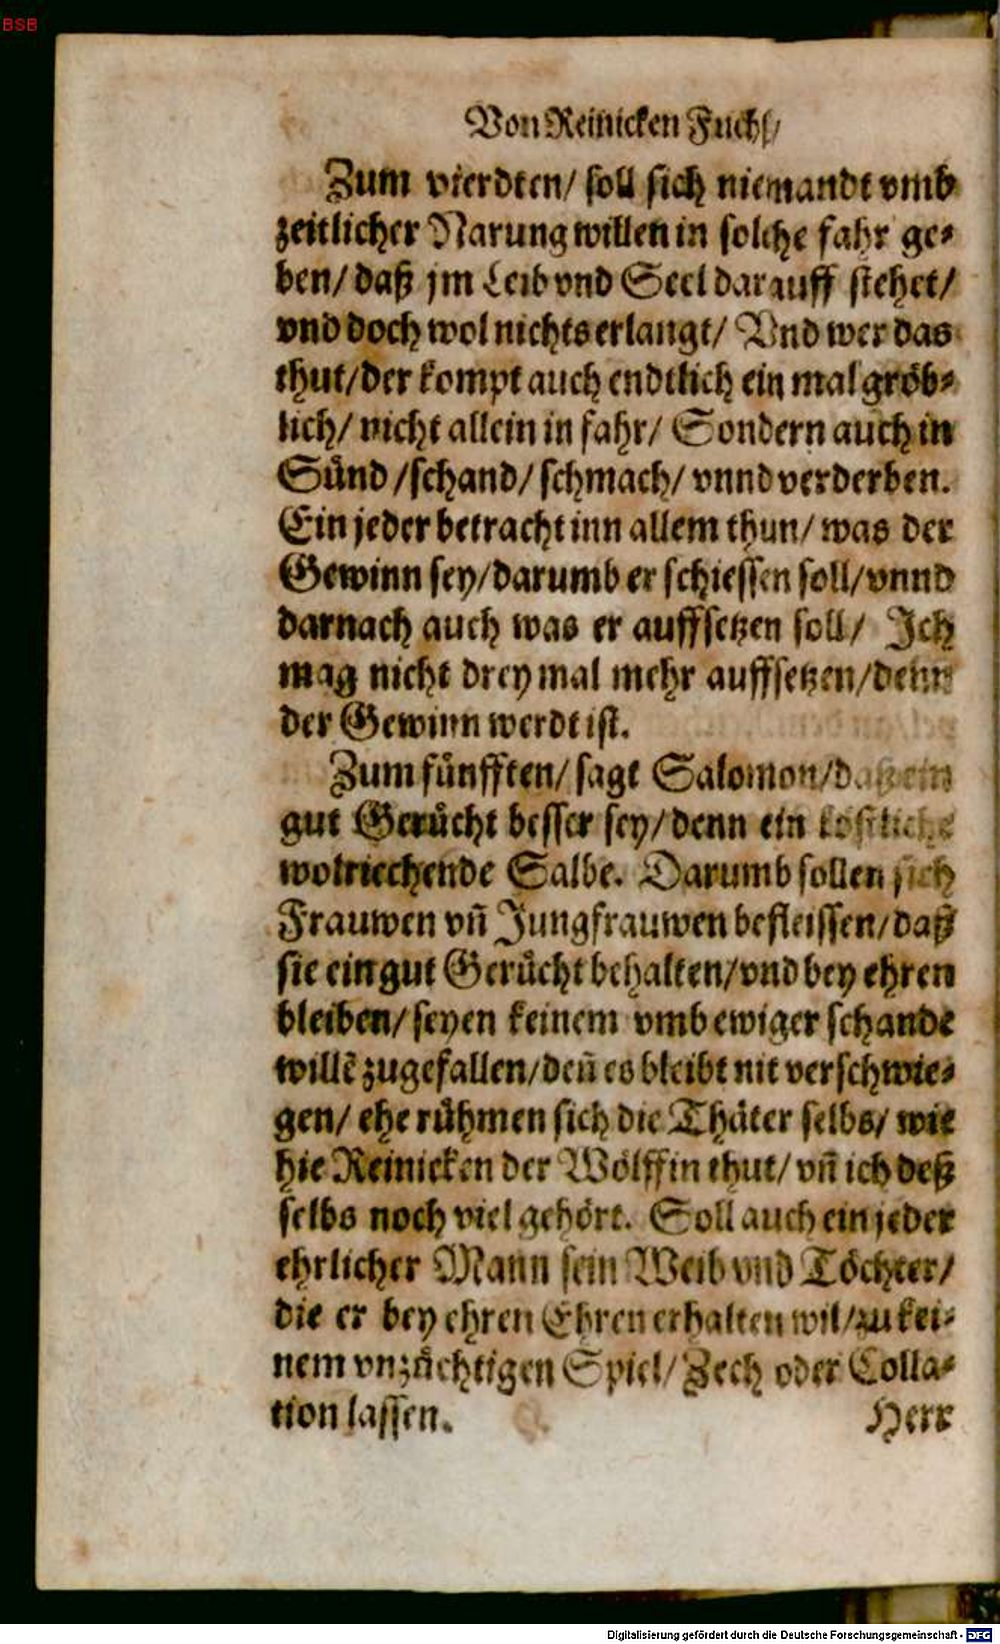 BSB
Von Reinicken Fuchs/
Zum vierdten/ soll sich niemandt vmb
zeitlicher Narung willen in solche fahr ge⸗
ben/ daß jm Leib vnd Seel darauff stehet/
vnd doch wol nichts erlangt/ Vnd wer das
thut/ der kompt auch endtlich ein mal gröb⸗
lich/ nicht allein in fahr/ Sondern auch in
Sünd /schand/ schmach/ vnnd verderben.
Ein jeder betracht inn allem thun/ was der
Gewinn sey/ darumb er schiessen soll/ vnnd
darnach auch was er auffsetzen soll/ Ich
mag nicht drey mal mehr auffsetzen/ denn
der Gewinn werdt ist.
Zum fünfften/ sagt Salomon/ daß ein
gut Gerücht besser sey/ denn ein köstliche
wolriechende Salbe. Darumb sollen sich
Frauwen vn̄ Jungfrauwen befleissen/ daß
sie ein gut Gerücht behalten/ vnd bey ehren
bleiben/ seyen keinem vmb ewiger schande
willē zugefallen/ den̄ es bleibt nit verschwie⸗
gen/ ehe rühmen sich die Thäter selbs/ wie
hie Reinicken der Wölffin thut/ vn̄ ich deß
selbs noch viel gehört. Soll auch ein jeder
ehrlicher Mann sein Weib vnd Töchter/
die er bey ehren Ehren erhalten wil/ zu kei⸗
nem vnzüchtigen Spiel/ Zech oder Colla⸗
tion lassen. Herr
Digitalisierung gefördert durch die Deutsche Forschungsgemeinschaft - DFG